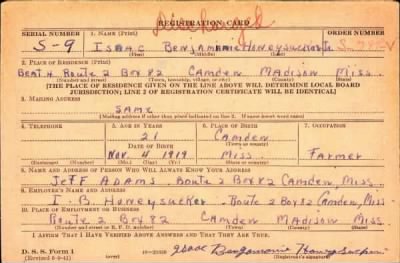 Discharged
REGISTRATION CARD
SERIAL NUMBER 1. NAME (Print)
S-9 Isaac Benjamanie Honeysucker
(First) (Middle) (Last)
2. PLACE OF RESIDENCE (Print)
Beat 4 Route 2 Box 82 Camden Madison Miss.
(Number and street) (Town, township, village, or city) (County) (State)
[THE PLACE OF RESIDENCE GIVEN ON THE LINE ABOVE WILL DETERMINE LOCAL BOARD
JURISDICTION; LINE 2 OF REGISTRATION CERTIFICATE WILL BE IDENTICAL]
3. MAILING ADDRESS
SAME
[Mailing address if other than place indicated on line 2. If same insert word same]
4. TELEPHONE 5. AGE IN YEARS 6. PLACE OF BIRTH 7. OCCUPATION
21 Camden
DATE OF BIRTH (Town or county)
Nov. 4 1919 Miss. Farmer
(Exchange) (Number) (Mo.) (Day) (Yr.) (State or country)
8. NAME AND ADDRESS OF PERSON WHO WILL ALWAYS KNOW YOUR ADDRESS
Jeff Adams Route 2 Box 82 Camden, Miss.
9. EMPLOYER'S NAME AND ADDRESS
I. B. Honeysucker Route 2 Box 82 Camden, Miss.
10. PLACE OF EMPLOYMENT OR BUSINESS
Route 2 Box 82 Camden Madison Miss.
(Number and street or R. F. D. number) (Town) (County) (State)
I AFFIRM THAT I HAVE VERIFIED ABOVE ANSWERS AND THAT THEY ARE TRUE.
D. S. S. Form 1
(Revised 6-9-41) (over) Isaac Benjamanie Honeysucker
(Registrant's signature)